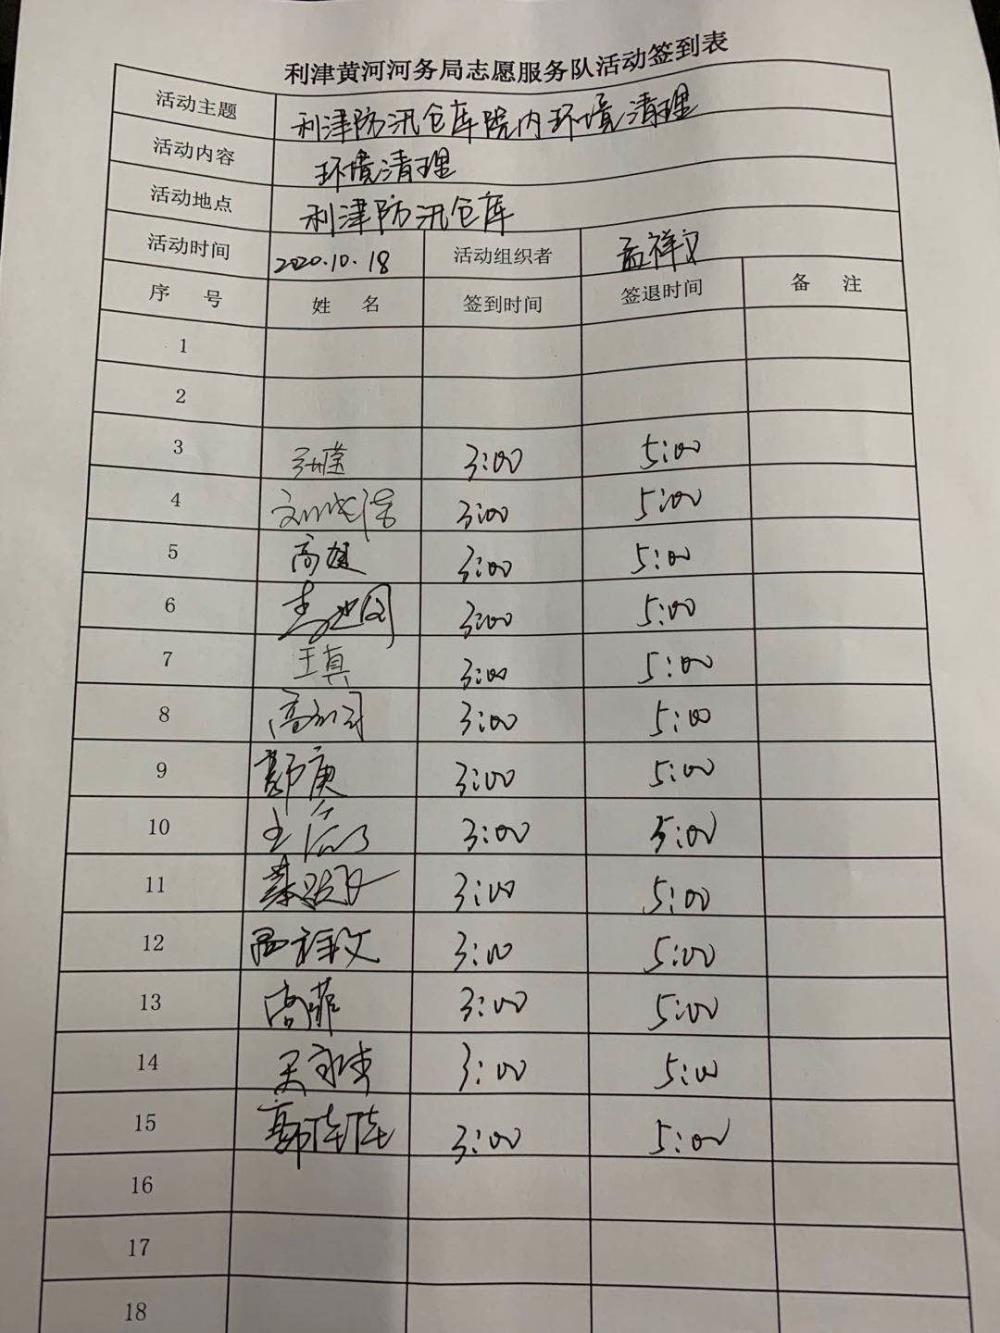 利津黄河河务局志愿服务队活动签到表
活动主题 利津防汛仓库院内环境清理
活动内容 环境清理
活动地点 利津防汛仓库
活动时间 2020.10.18 活动组织者 孟祥文
序 号 姓 名 签到时间 签退时间 备 注
1
2
3 3:00 5:00
4 3:00 5:00
5 高健 3:00 5:00
6 3:00 5:00
7 王真 3:00 5:00
8 3:00 5:00
9 郭庚 3:00 5:00
10 3:00 5:00
11 3:00 5:00
12 孟祥文 3:00 5:00
13 高菲 3:00 5:00
14 3:00 5:00
15 郭佳佳 3:00 5:00
16
17
18